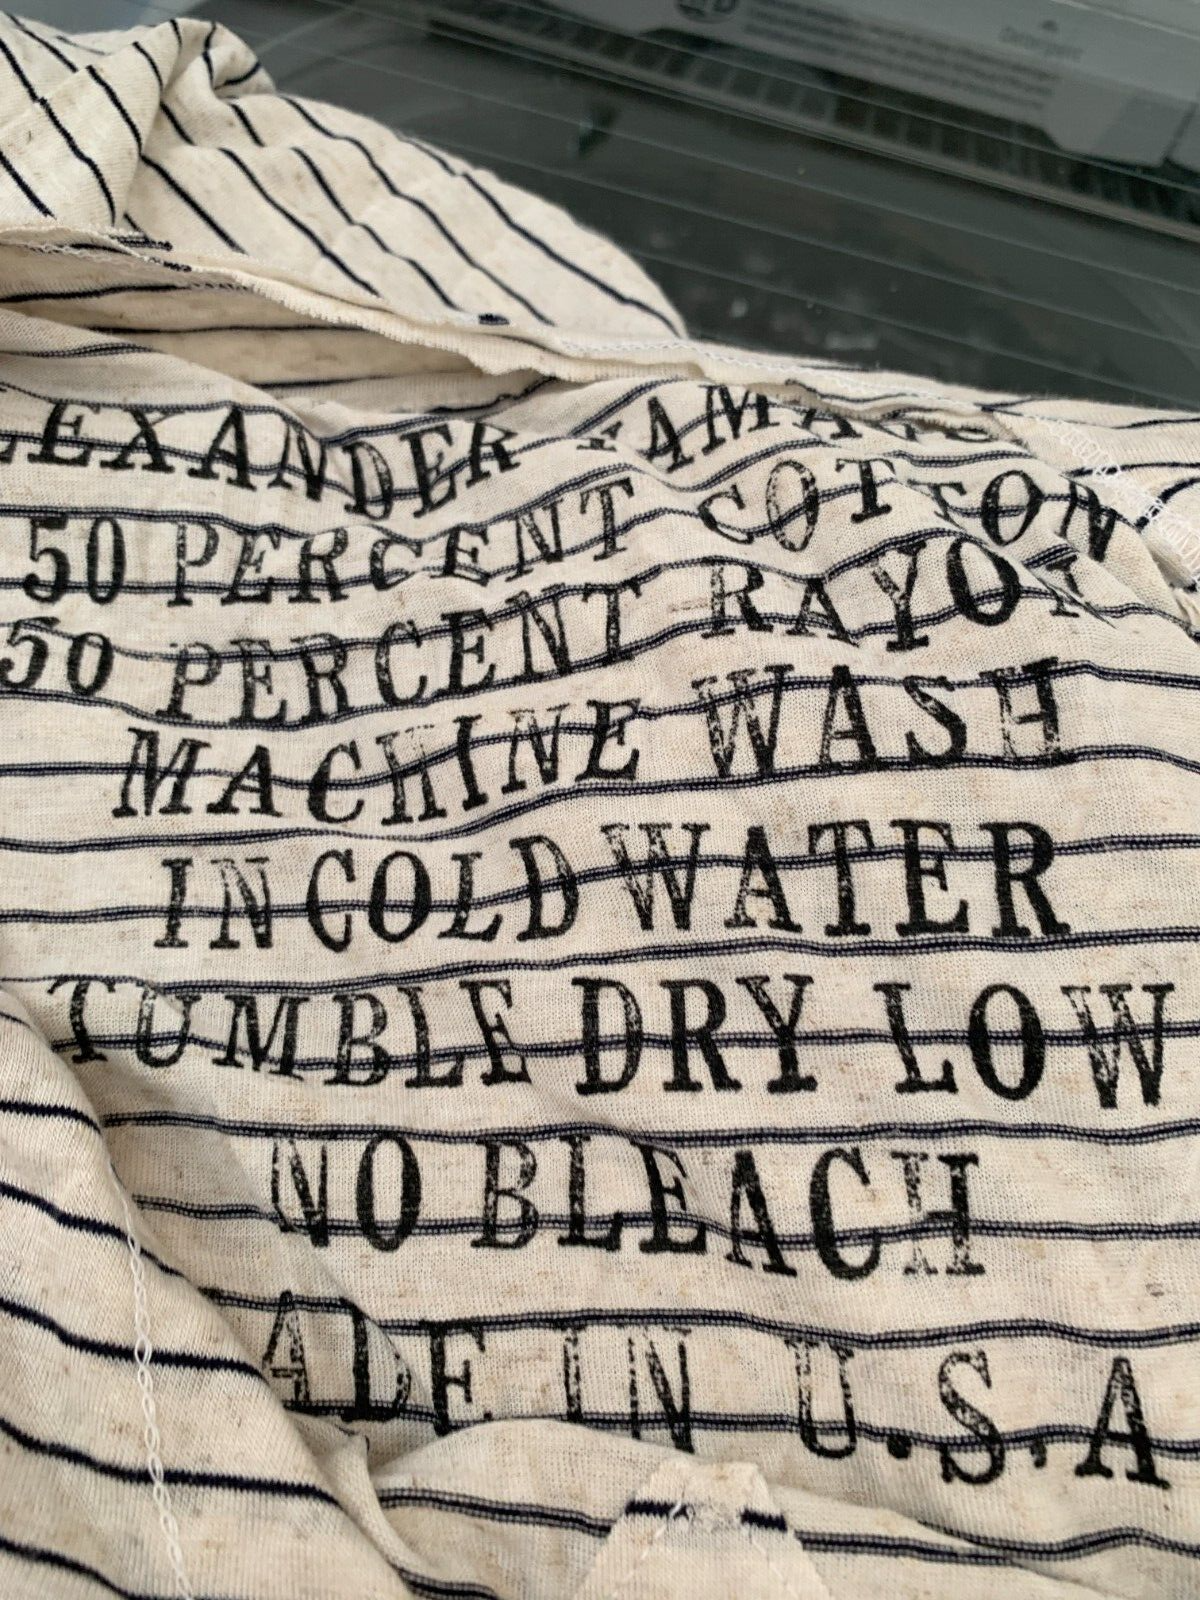 LEXANDER YAMAGU
50 PERCENT COTTON
50 PERCENT RAYON
MACHINE WASH
IN COLD WATER
TUMBLE DRY LOW
NO BLEACH
ADE IN U.S.A